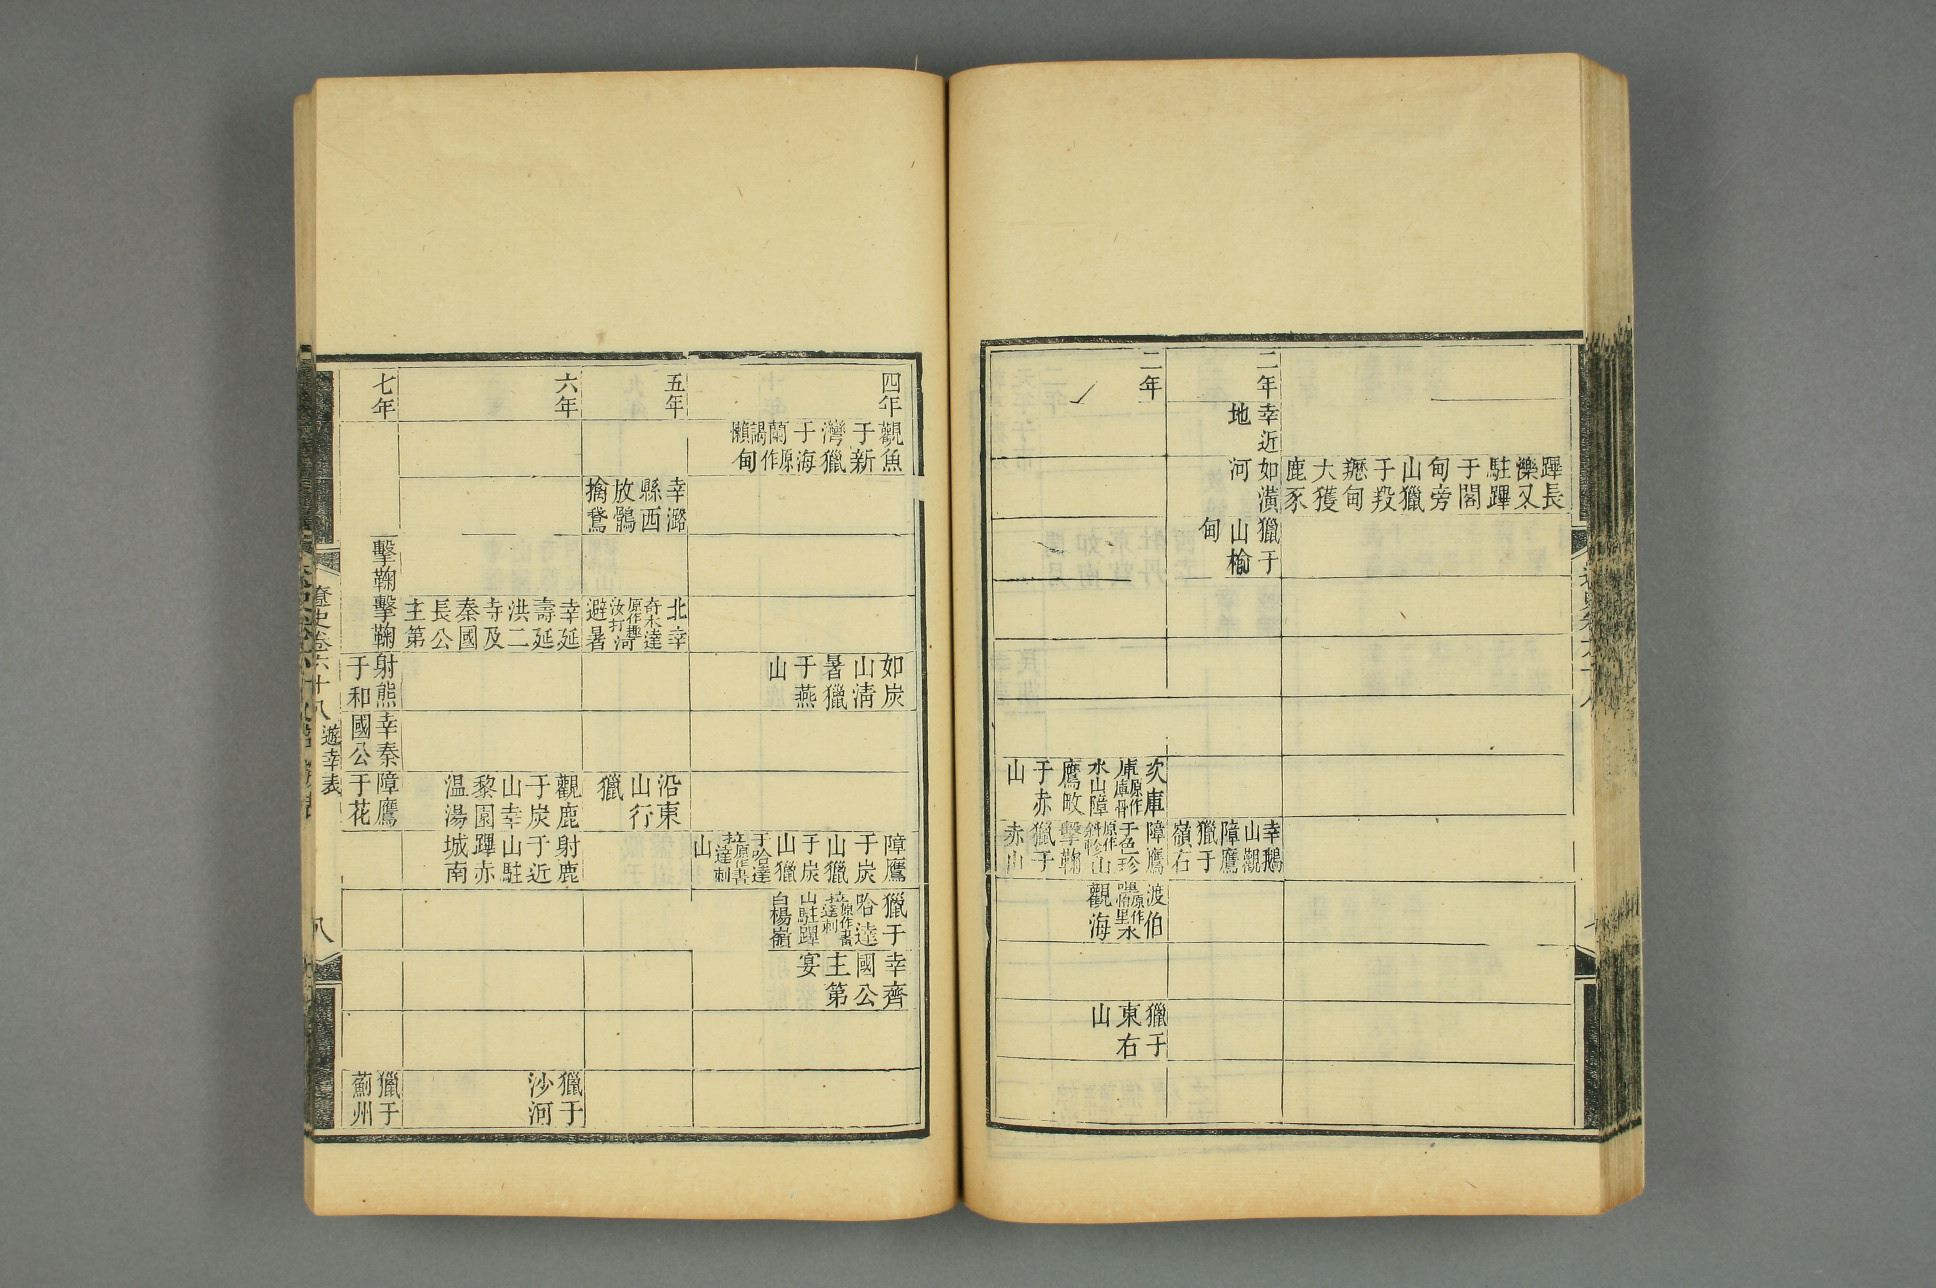 蹕長
濼又
駐蹕
于閣
甸旁
山獵
于羖
㢠甸
大獲
鹿豕
二年
幸近
地
如潢
河
獵于
山榆
甸
幸鵝
山觀
障鷹
獵于
嶺右
二年
庫原作庫骨
水山障
鷹畋
于赤
山
障鷹
于色珍
原作斜軫山
擊鞠
獵于
赤山
渡伯
水
觀海
獵于
東右
山
四年
觀魚
于新
灣獵
于海
蘭原作
謁懶甸
如炭
山清
暑獵
于燕
山
障鷹
于炭
山獵
于炭
山獵
于哈達
拉原作書達剌
山
獵于
哈達
拉原作書達剌
山駐蹕
白楊嶺
幸齊
國公
主第
宴
五年
幸潞
縣西
放鶻
擒鵞
北幸
奇木達
原作趣
汝打渮
避暑
沿東
山行
獵
六年
幸延
壽延
洪二
寺及
秦國
長公
主第
觀鹿
于炭
山幸
黎園
温湯
射鹿
于近
山駐
蹕赤
城南
獵于
沙河
七年
擊鞠
擊鞠
射熊
于和
幸秦
國公
障鷹
于花
獵于
薊州
遼史卷六十八 遊幸表
八